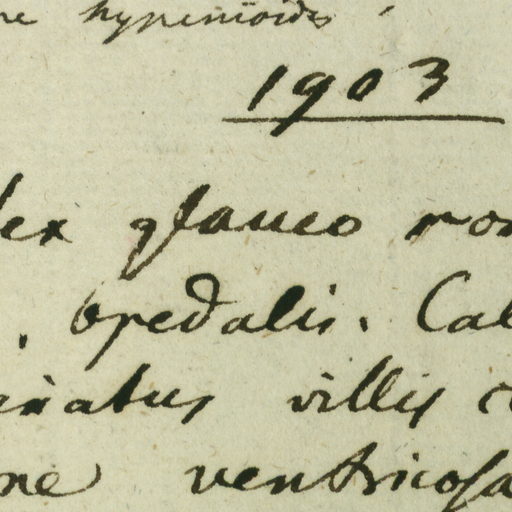 hyperinoides
1903
lex glauco ro
, opedalis. Cal
inatus villis c
ne ventricosa